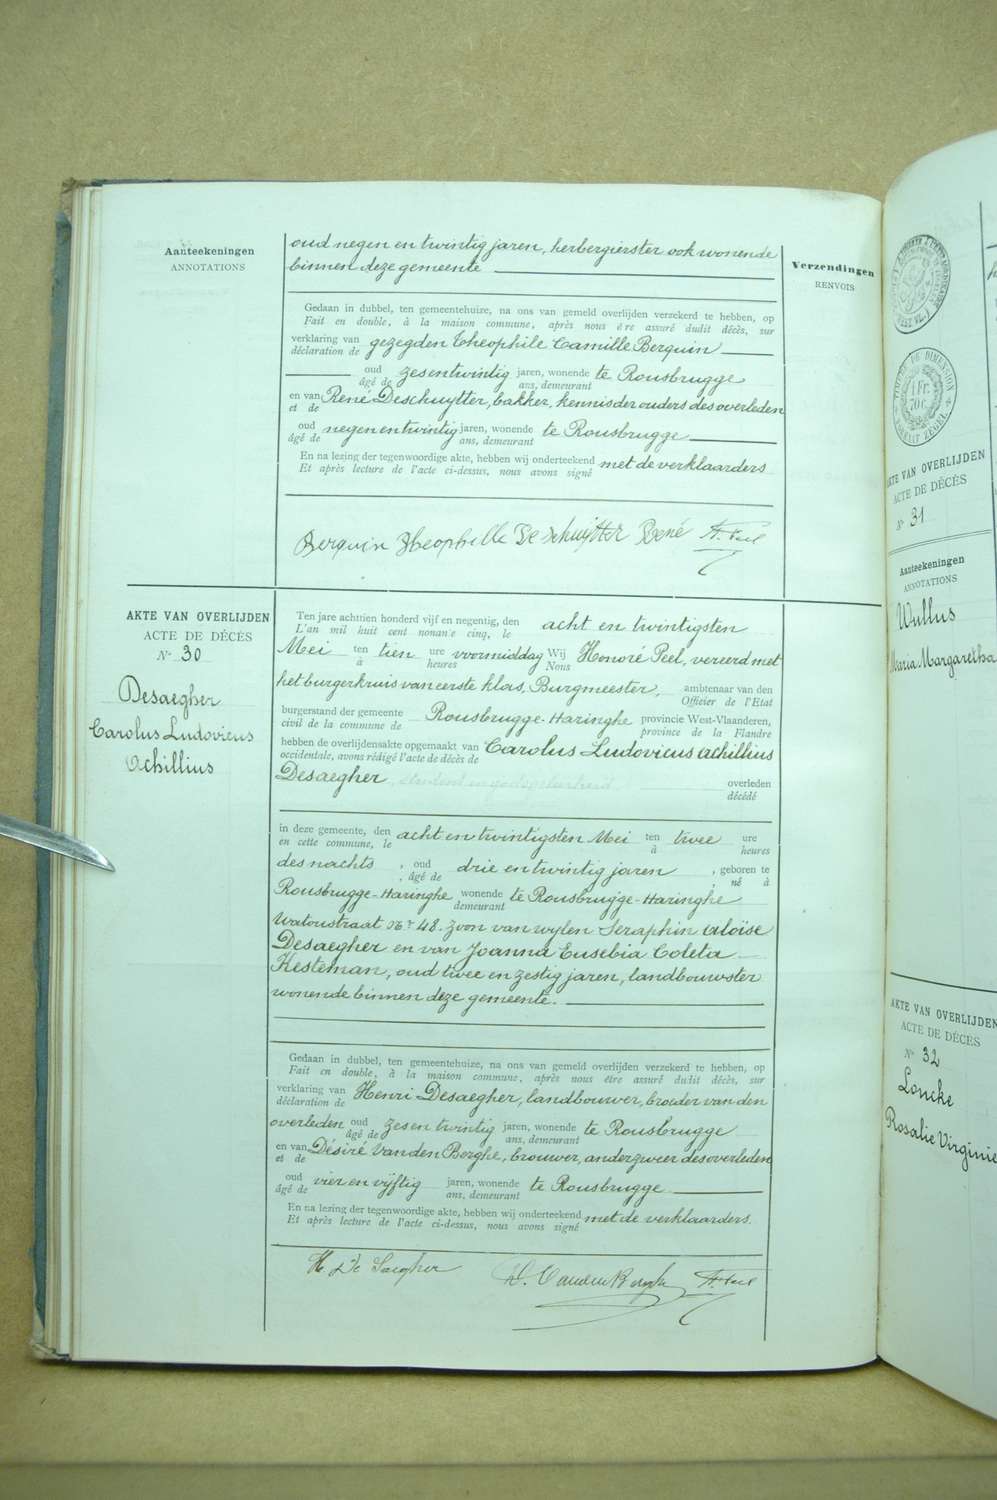 Aanteekeningen
ANNOTATIONS
oud negen en twintig jaren, herbergierster ook wonende
binnen deze gemeente
Verzendingen
RENVOIS
Gedaan in dubbel, ten gemeentehuize, na ons van gemeld overlijden verzekerd te hebben, op
Fait en double, à la maison commune, après nous être assuré dudit décès, sur
verklaring van gezegden Theophile Camille Berquin
déclaration de
oud zes en twintig jaren, wonende te Rousbrugge
âgé de ans, demeurant
en van René Deschuytter, bakker, kennis der ouders des overleden
et de
oud negen en twintig jaren, wonende te Rousbrugge
âgé de ans, demeurant
En na lezing der tegenwoordige akte, hebben wij onderteekend met de verklaarders
Et après lecture de l'acte ci-dessus, nous avons signé
Berquin Theophille Deschuytter René H. Peel
AKTE VAN OVERLIJDEN
ACTE DE DÉCÈS
N° 30
Desaegher
Carolus Ludovicus
Achillius
Ten jare achttien honderd vijf en negentig, den acht en twintigsten
L'an mil huit cent nonante cinq, le
Mei ten tien ure voormiddag Wij Honoré Peel, vereerd met
à heures Nous
het burgerkruis van eerste klas, Burgmeester, ambtenaar van den
Officier de l'Etat
burgerstand der gemeente Rousbrugge-Haringhe provincie West-Vlaanderen,
civil de la commune de province de la Flandre
hebben de overlijdensakte opgemaakt van Carolus Ludovicus Achillius
occidentale, avons rédigé l'acte de décès de
Desaegher, student in godsgeleerheid overleden
décédé
in deze gemeente, den acht en twintigsten Mei ten twee ure
en cette commune, le à heures
des nachts, oud drie en twintig jaren, geboren te
, âgé de , né à
Rousbrugge-Haringhe wonende te Rousbrugge-Haringhe
demeurant
Watoustraat N° 48. zoon van wylen Seraphin Aloïse
Desaegher en van Joanna Eusebia Coleta
Kesteman, oud twee en zestig jaren, landbouwster
wonende binnen deze gemeente.
Gedaan in dubbel, ten gemeentehuize, na ons van gemeld overlijden verzekerd te hebben, op
Fait en double, à la maison commune, après nous être assuré dudit décès, sur
verklaring van Henri Desaegher, landbouwer, broeder van den
déclaration de
overleden oud zes en twintig jaren, wonende te Rousbrugge
âgé de ans, demeurant
en van Désiré Vanden Berghe, brouwer, anderzweer des overleden
et de
oud vier en vijftig jaren, wonende te Rousbrugge
âgé de ans, demeurant
En na lezing der tegenwoordige akte, hebben wij onderteekend met de verklaarders.
Et après lecture de l'acte ci-dessus, nous avons signé
H De Saegher D. Vanden Berghe H. Peel
TIMBRE DE DIMENSION
1 Fr.
70 c.
FORMAAT ZEGEL
AKTE VAN OVERLIJDEN
ACTE DE DÉCÈS
N° 31
Aanteekeningen
ANNOTATIONS
Wullus
Maria Margaretha
AKTE VAN OVERLIJDEN
ACTE DE DÉCÈS
N° 32
Loncke
Rosalie Virginie